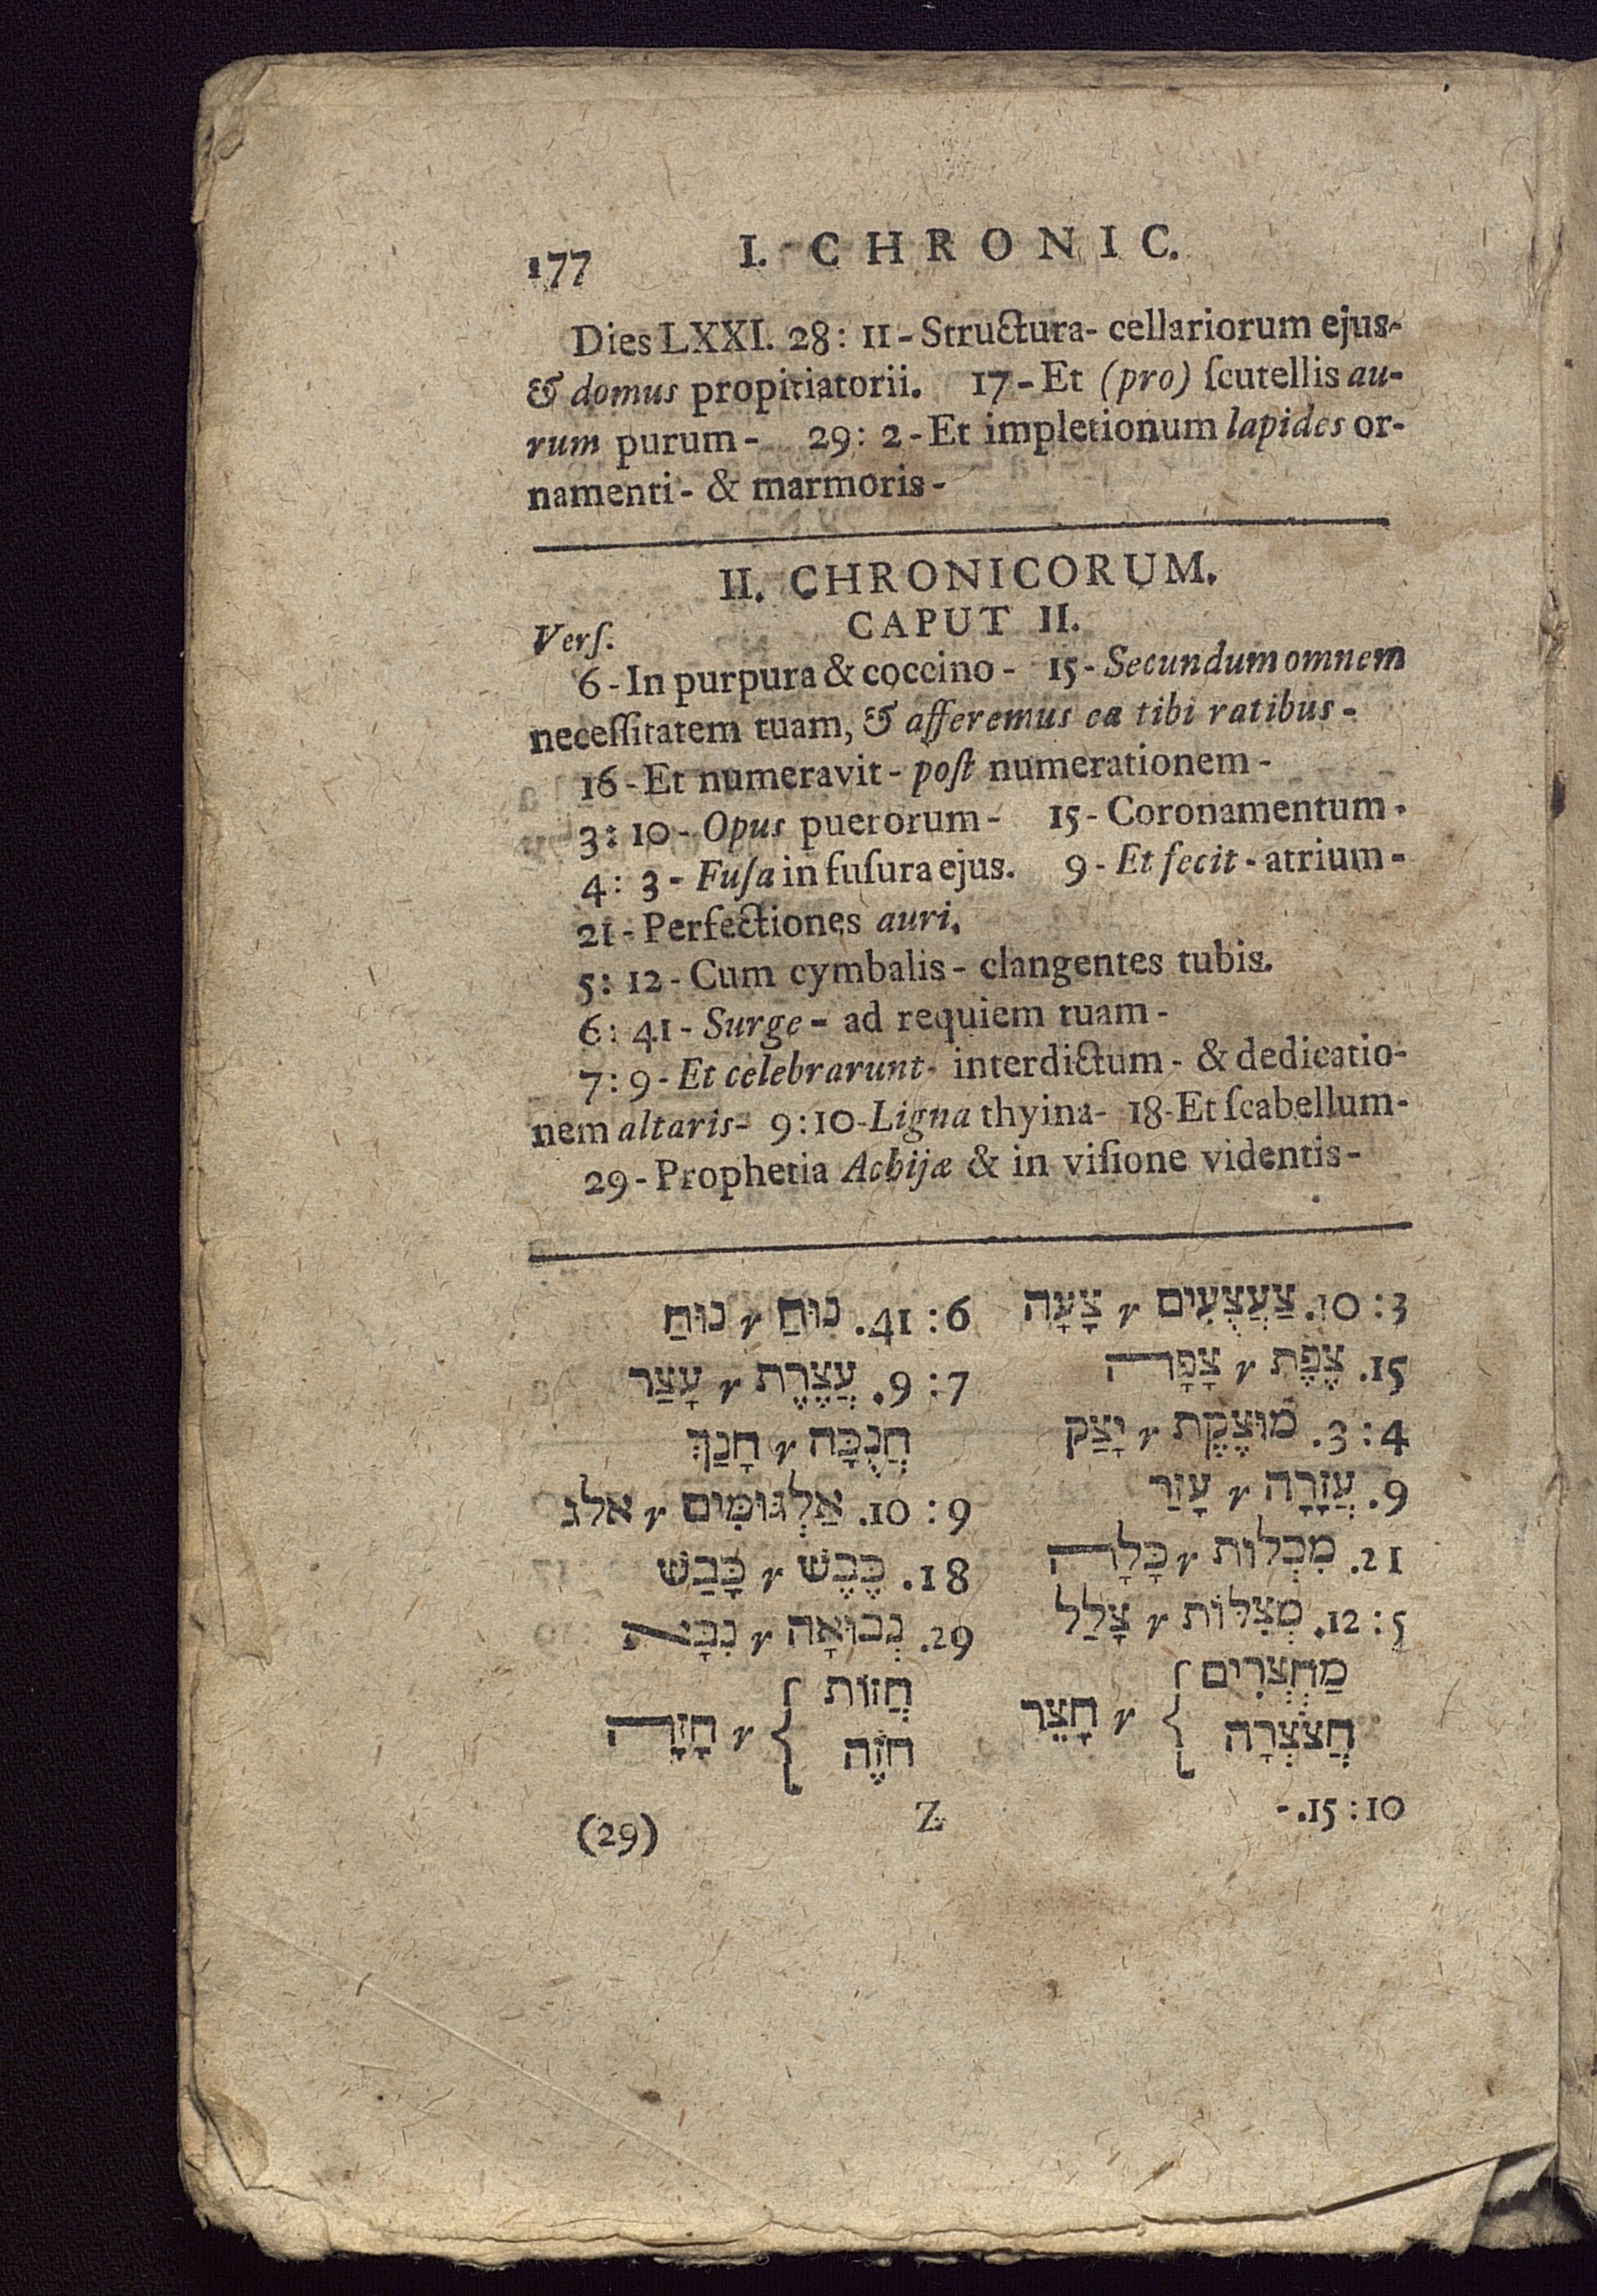 177 I. CHRONIC.
Dies LXXI. 28: 11 - Structura- cellariorum ejus-
& domus propitiatorii. 17 - Et (pro) ſcutellis au-
rum purum - 29: 2 - Et impletionum lapides or-
namenti - & marmoris -
II. CHRONICORUM.
CAPUT II.
Verſ.
6 - In purpura & coccino - 15 - Secundum omnem
neceſſitatem tuam, & afferemus ea tibi ratibus -
16 - Et numeravit - poſt numerationem -
3: 10 - Opus puerorum - 15 - Coronamentum -
4: 3 - Fuſa in fuſura ejus. 9 - Et fecit - atrium -
21 - Perfectiones auri.
5: 12 - Cum cymbalis - clangentes tubis.
6: 41 - Surge - ad requiem tuam -
7: 9 - Et celebrarunt - interdictum - & dedicatio-
nem altaris - 9: 10 - Ligna thyina - 18 - Et ſcabellum -
29 - Prophetia Achijæ & in viſione videntis -
3: 10. צַעֲצֻעִים r צָעָה
15. צֶפֶת r צָפָה
4: 3. מוּצֶקֶת r יָצַק
9. עֲזָרָה r עָזַר
21. מִכְלוֹת r כָּלָה
5: 12. מְצִלּוֹת r צָלַל
מַחְצְרִים
חֲצֹצְרָה } r חָצֵר
10: 15. -
6: 41. נוּחַ r נוּחַ
7: 9. עֲצֶרֶת r עָצַר
חֲנֻכָּה r חָנַךְ
9: 10. אַלְגּוּמִּים r אלג
18. כֶּבֶשׁ r כָּבַשׁ
29. נְבוּאָה r נִבָּא
חֲזוֹת
חֹזֶה } r חָזָה
(29) Z